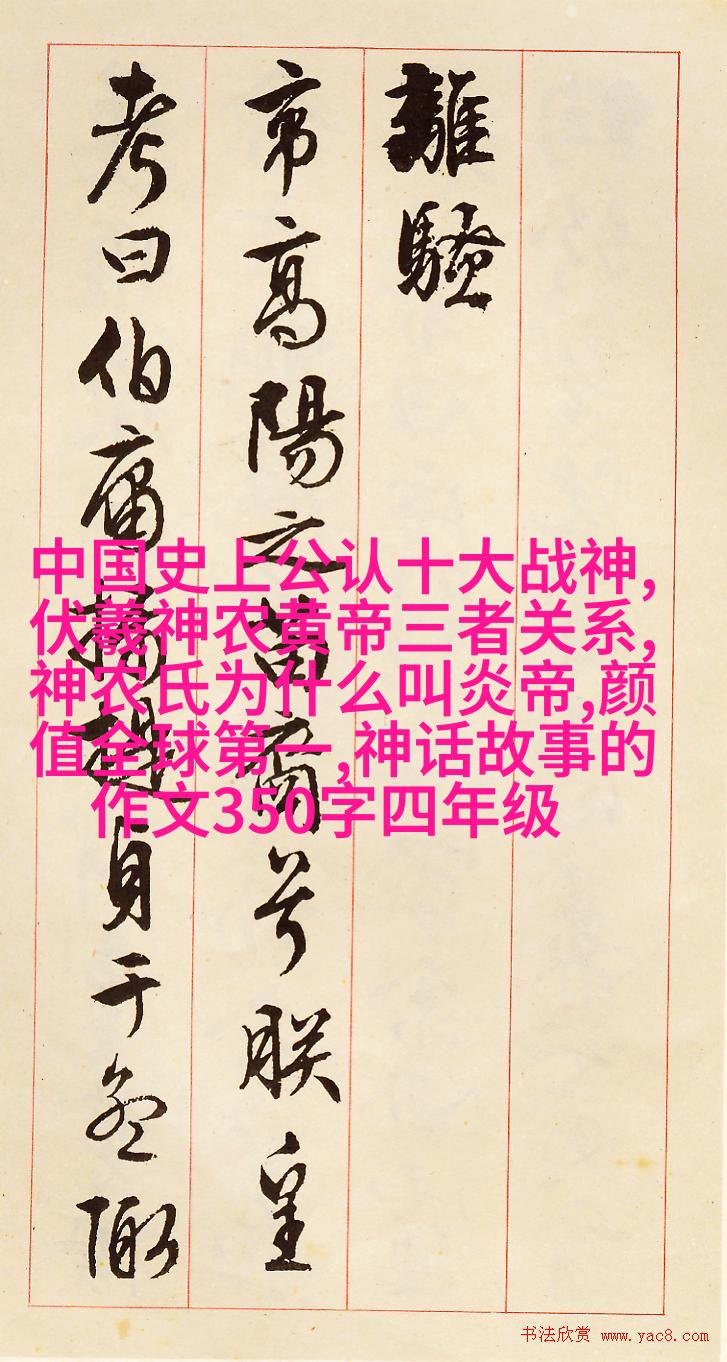 離騷
帝高陽之苗裔兮朕皇
考曰伯庸攝提貞于孟陬
中国史上公认十大战神,
伏羲神农黄帝三者关系,
神农氏为什么叫炎帝,颜
值全球第一,神话故事的
作文350字四年级
书法欣赏 www.yac8.com